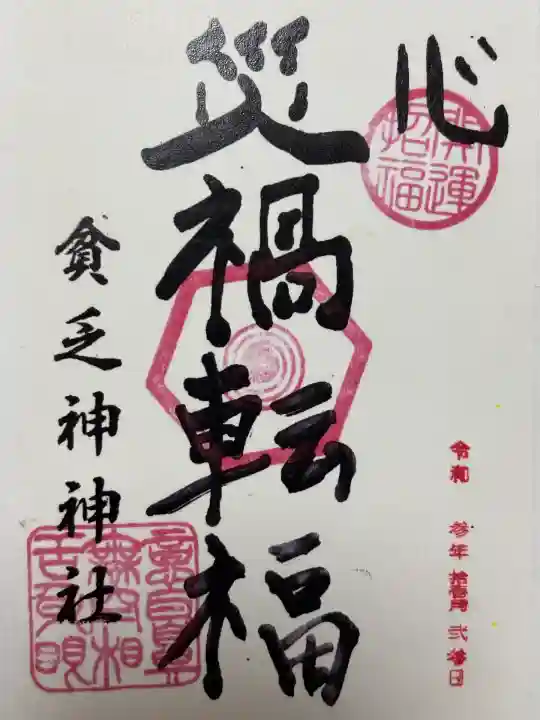 心
開運
招福
令和 参年 拾壱月 弐拾日
災禍転福
貧乏神神社